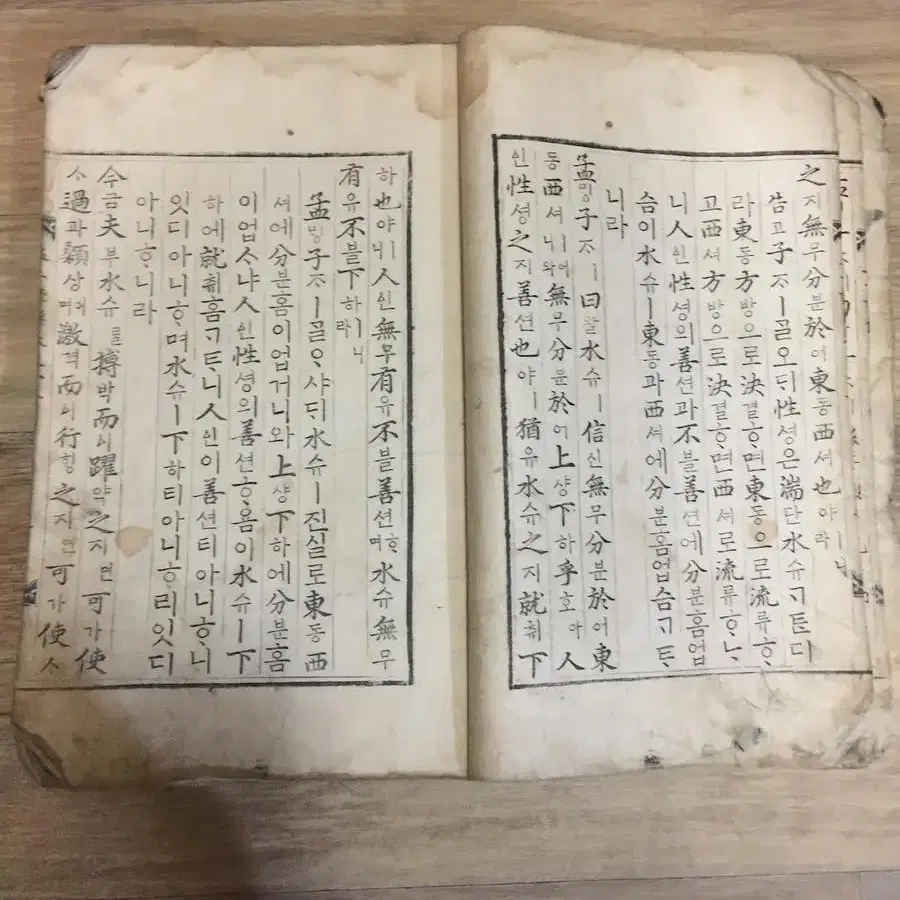 之지無무分분於어東동西셔也야ㅣ니라
告고子ᄌᆞㅣᄀᆞᆯ오ᄃᆡ性셩은湍단水슈ᄀᆞᄐᆞᆫ디
라東동方방으로決결ᄒᆞ면東동으로流류ᄒᆞ
고西셔方방으로決결ᄒᆞ면西셔로流류ᄒᆞᄂᆞ
니人인性셩의善션과不블善션에分분홈업
슴이水슈ㅣ東동과西셔에分분홈업슴ᄀᆞᄐᆞ
니라
孟ᄆᆡᆼ子ᄌᆞㅣ曰왈水슈ㅣ信신無무分분於어東
동西셔ㅣ어니와無무分분於어上샹下하乎호아人
인性셩之지善션也야ㅣ猶유水슈之지就취下
하也야ㅣ니人인無무有유不블善션ᄒᆞ며水슈無무
有유不블下하ㅣ니라
孟ᄆᆡᆼ子ᄌᆞㅣᄀᆞᆯᄋᆞ샤ᄃᆡ水슈ㅣ진실로東동西
셔에分분홈이업거니와上샹下하에分분홈
이업스냐人인性셩의善션ᄒᆞ옴이水슈ㅣ下
하에就취홈ᄀᆞᄐᆞ니人인이善션티아니ᄒᆞ니
잇디아니ᄒᆞ며水슈ㅣ下하티아니ᄒᆞ리잇디
아니ᄒᆞ니라
今금夫부水슈를搏박而이躍약之지면可가使
ᄉᆞ過과顙상며激격而이行ᄒᆡᆼ之지면可가使ᄉᆞ